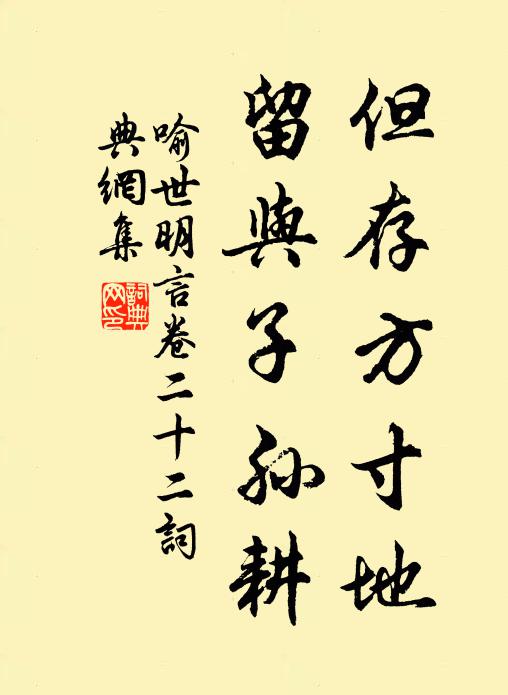 但存方寸地
留與子孫耕
喻世明言卷二十二詞
典網集
詞典
网印